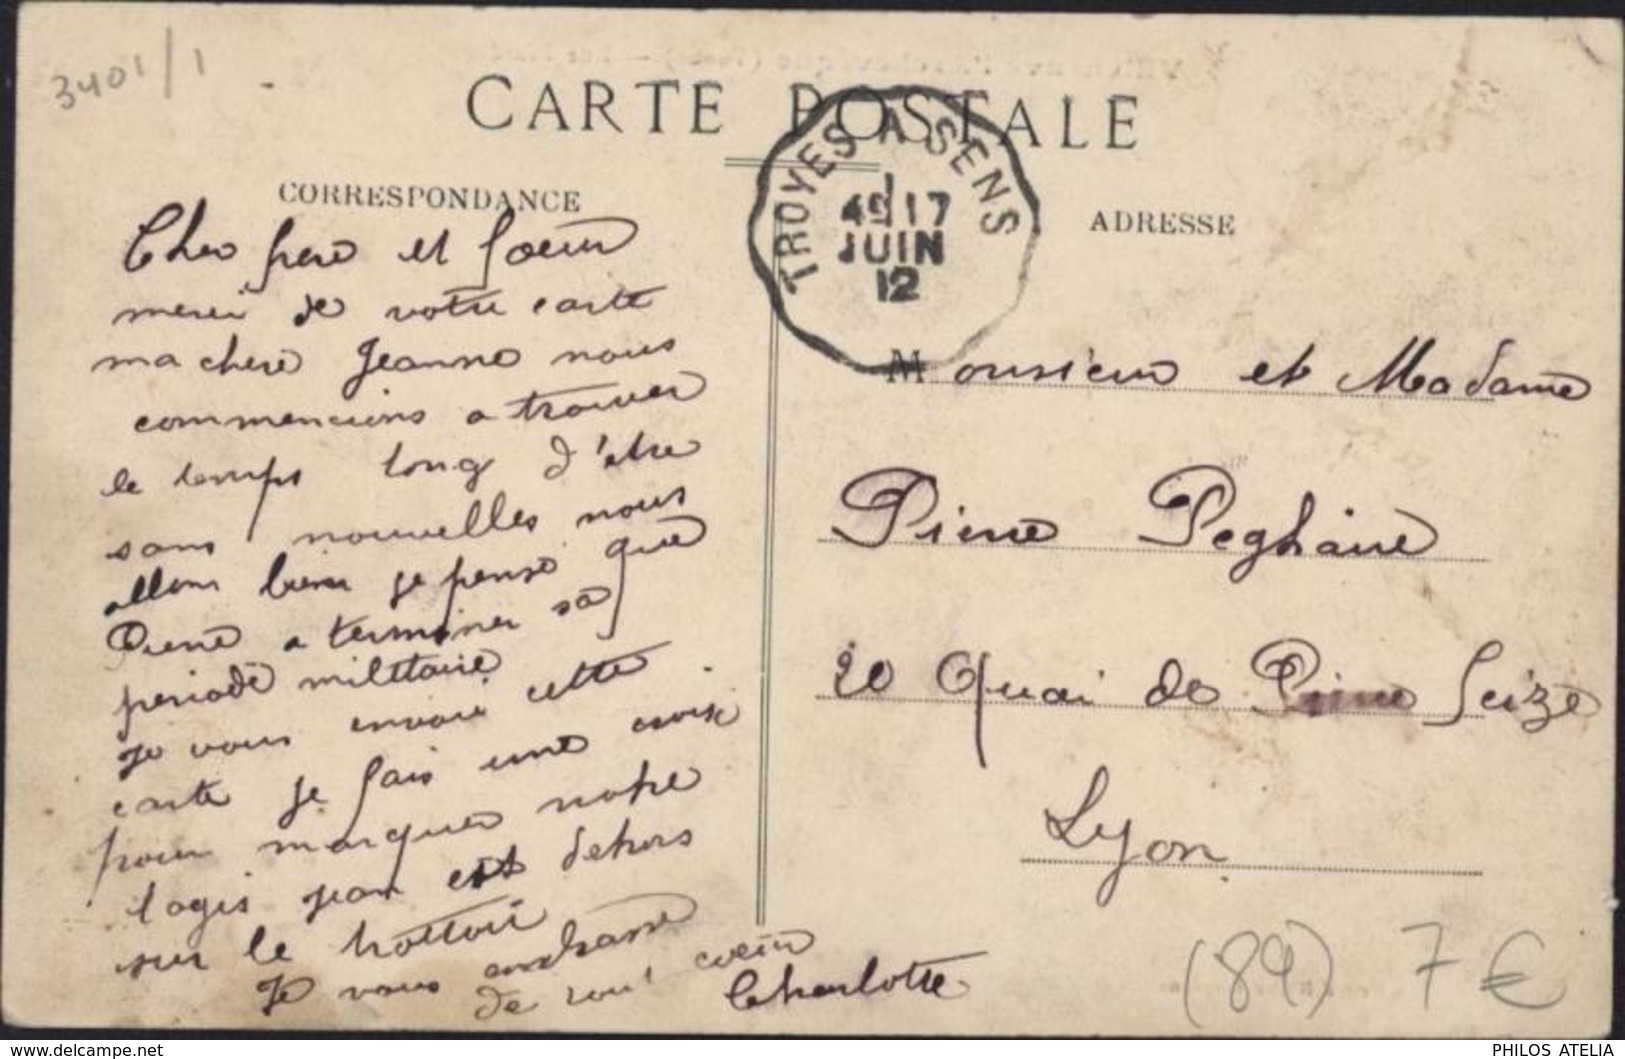 3401/1
CARTE POSTALE
CORRESPONDANCE
ADRESSE
TROYES A SENS
1
4E 17
JUIN
12
Cher frere et soeur
merci de votre carte
ma chere Jeanne nous
commencions a trouver
le temps long d'etre
sans nouvelles nous
allons bien je pense que
Pierre a terminer sa
periode militaire
Je vous envoie cette
carte je fais une croix
pour marquer notre
logis Jean est dehors
sur le trottoir
Je vous embrasse
de tout coeur
Charlotte
Monsieur et Madame
Pierre Peghaire
20 Quai de Pierre Seize
Lyon
(89) 7 €
delcampe.net
PHILOS ATELIA